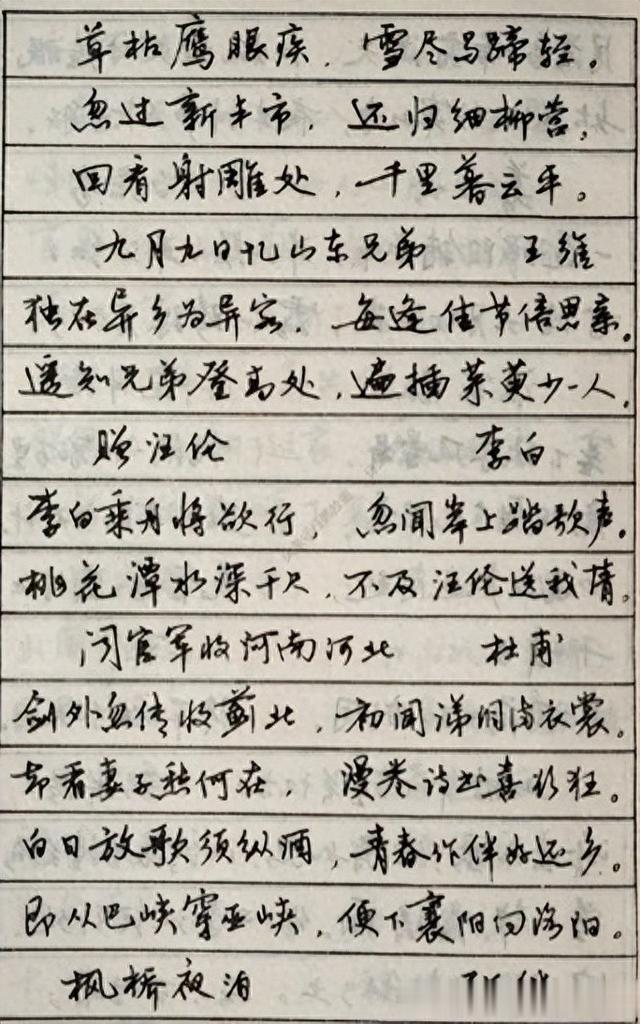 草枯鹰眼疾，雪尽马蹄轻。
忽过新丰市，还归细柳营。
回看射雕处，千里暮云平。
九月九日忆山东兄弟 王维
独在异乡为异客，每逢佳节倍思亲。
遥知兄弟登高处，遍插茱萸少一人。
赠汪伦 李白
李白乘舟将欲行，忽闻岸上踏歌声。
桃花潭水深千尺，不及汪伦送我情。
闻官军收河南河北 杜甫
剑外忽传收蓟北，初闻涕泪满衣裳。
却看妻子愁何在，漫卷诗书喜欲狂。
白日放歌须纵酒，青春作伴好还乡。
即从巴峡穿巫峡，便下襄阳向洛阳。
枫桥夜泊